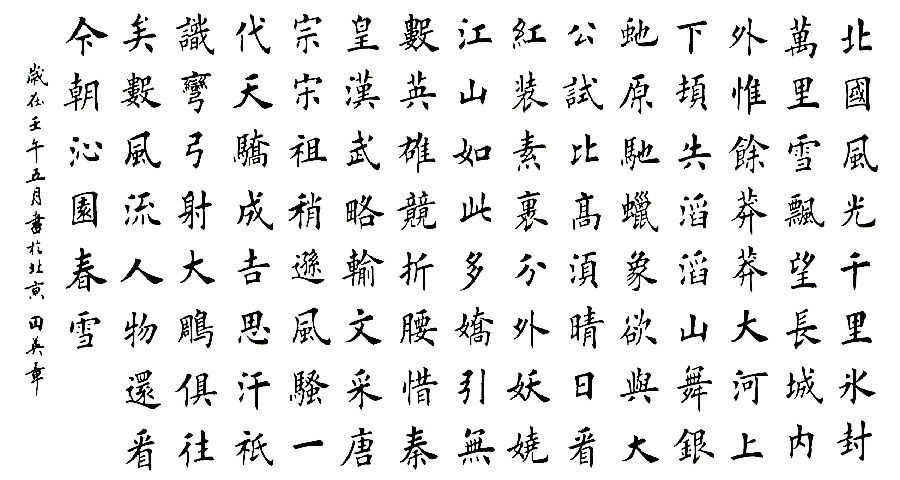 北國風光千里氷封
萬里雪飄望長城内
外惟餘莽莽大河上
下頓失滔滔山舞銀
虵原馳蠟象欲與大
公試比高須晴日看
紅装素裹分外妖嬈
江山如此多嬌引無
數英雄競折腰惜秦
皇漢武略輸文采唐
宗宋祖稍遜風騷一
代天驕成吉思汗祇
識彎弓射大鵰俱往
矣數風流人物還看
今朝沁園春雪
歲在壬午五月書於北京 田英章